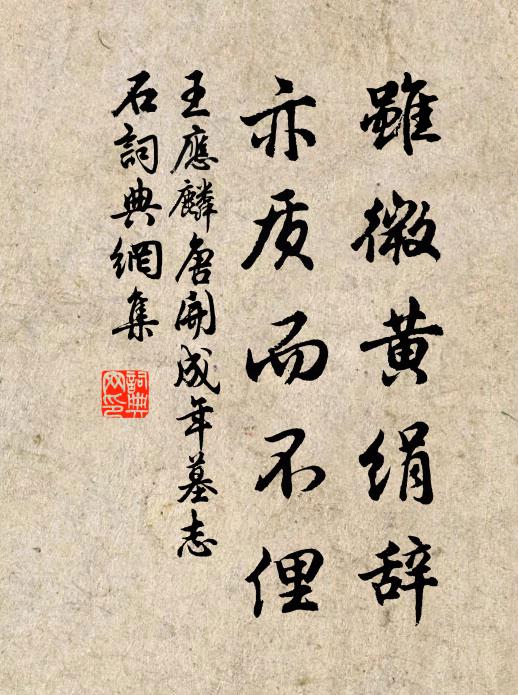 雖微黄绢辞
亦质而不俚
王應麟唐開成年墓志
石詞典網集
詞典
网印